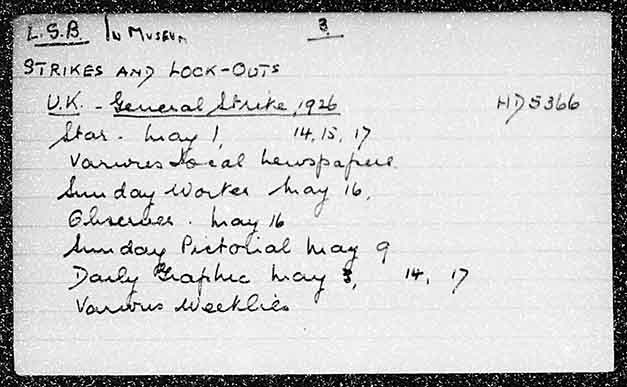 L.S.B. IN MUSEUM 3.
STRIKES AND LOCK-OUTS
U.K. - General Strike, 1926 HD5366
Star - May 1, 14, 15, 17
Various Local Newspapers.
Sunday Worker May 16,
Observer. May 16
Sunday Pictorial May 9
Daily Graphic May 3, 14, 17
Various Weeklies